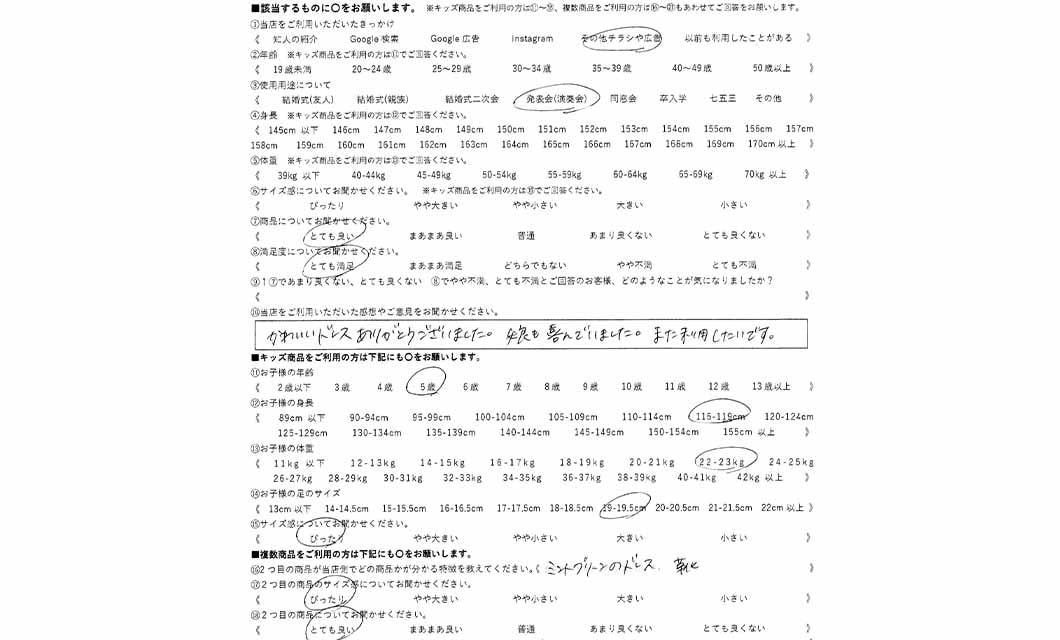 ■該当するものに〇をお願いします。 ※キッズ商品をご利用の方は⑪～⑮、複数商品をご利用の方は⑯～㉑もあわせてご回答をお願いします。
①当店をご利用いただいたきっかけ
《 知人の紹介 Google 検索 Google 広告 Instagram その他チラシや広告 以前も利用したことがある 》
②年齢 ※キッズ商品をご利用の方は⑪でご回答ください。
《 19歳未満 20～24歳 25～29歳 30～34歳 35～39歳 40～49歳 50歳以上 》
③使用用途について
《 結婚式(友人) 結婚式(親族) 結婚式二次会 発表会(演奏会) 同窓会 卒入学 七五三 その他 》
④身長 ※キッズ商品をご利用の方は⑫でご回答ください。
《 145cm 以下 146cm 147cm 148cm 149cm 150cm 151cm 152cm 153cm 154cm 155cm 156cm 157cm
158cm 159cm 160cm 161cm 162cm 163cm 164cm 165cm 166cm 167cm 168cm 169cm 170cm以上 》
⑤体重 ※キッズ商品をご利用の方は⑬でご回答ください。
《 39kg 以下 40-44kg 45-49kg 50-54kg 55-59kg 60-64kg 65-69kg 70kg 以上 》
⑥サイズ感についてお聞かせください。 ※キッズ商品をご利用の方は⑮でご回答ください。
《 ぴったり やや大きい やや小さい 大きい 小さい 》
⑦商品についてお聞かせください。
《 とても良い まあまあ良い 普通 あまり良くない とても良くない 》
⑧満足度についてお聞かせください。
《 とても満足 まあまあ満足 どちらでもない やや不満 とても不満 》
⑨1⑦であまり良くない、とても良くない ⑧でやや不満、とても不満とご回答のお客様、どのようなことが気になりましたか？
《 》
⑩当店をご利用いただいた感想やご意見をお聞かせください。
かわいいドレスありがとうございました。娘も喜んでいました。また利用したいです。
■キッズ商品をご利用の方は下記にも〇をお願いします。
⑪お子様の年齢
《 2歳以下 3歳 4歳 5歳 6歳 7歳 8歳 9歳 10歳 11歳 12歳 13歳以上 》
⑫お子様の身長
《 89cm 以下 90-94cm 95-99cm 100-104cm 105-109cm 110-114cm 115-119cm 120-124cm
125-129cm 130-134cm 135-139cm 140-144cm 145-149cm 150-154cm 155cm 以上 》
⑬お子様の体重
《 11kg 以下 12-13kg 14-15kg 16-17kg 18-19kg 20-21kg 22-23kg 24-25kg
26-27kg 28-29kg 30-31kg 32-33kg 34-35kg 36-37kg 38-39kg 40-41kg 42kg 以上 》
⑭お子様の足のサイズ
《 13cm以下 14-14.5cm 15-15.5cm 16-16.5cm 17-17.5cm 18-18.5cm 19-19.5cm 20-20.5cm 21-21.5cm 22cm以上 》
⑮サイズ感についてお聞かせください。
《 ぴったり やや大きい やや小さい 大きい 小さい 》
■複数商品をご利用の方は下記にも〇をお願いします。
⑯2つ目の商品が当店側でどの商品かが分かる特徴を教えてください。《 ミントグリーンのドレス、靴 》
⑰2つ目の商品のサイズ感についてお聞かせください。
《 ぴったり やや大きい やや小さい 大きい 小さい 》
⑱2つ目の商品についてお聞かせください。
《 とても良い まあまあ良い 普通 あまり良くない とても良くない 》